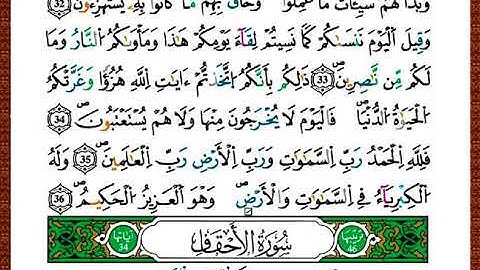 وَبَدَا لَهُمْ سَيِّـَٔاتُ مَا عَمِلُوا۟ وَحَاقَ بِهِم مَّا كَانُوا۟ بِهِۦ يَسْتَهْزِءُونَ 32
وَقِيلَ ٱلْيَوْمَ نَنسَىٰكُمْ كَمَا نَسِيتُمْ لِقَآءَ يَوْمِكُمْ هَٰذَا وَمَأْوَىٰكُمُ ٱلنَّارُ وَمَا
لَكُم مِّن نَّٰصِرِينَ 33 ذَٰلِكُم بِأَنَّكُمُ ٱتَّخَذْتُمْ ءَايَٰتِ ٱللَّهِ هُزُوًا وَغَرَّتْكُمُ
ٱلْحَيَوٰةُ ٱلدُّنْيَا ۚ فَٱلْيَوْمَ لَا يُخْرَجُونَ مِنْهَا وَلَا هُمْ يُسْتَعْتَبُونَ 34
فَلِلَّهِ ٱلْحَمْدُ رَبِّ ٱلسَّمَٰوَٰتِ وَرَبِّ ٱلْأَرْضِ رَبِّ ٱلْعَٰلَمِينَ 35 وَلَهُ
ٱلْكِبْرِيَآءُ فِى ٱلسَّمَٰوَٰتِ وَٱلْأَرْضِ ۖ وَهُوَ ٱلْعَزِيزُ ٱلْحَكِيمُ 36
ترتيبها 46 سُورَةُ ٱلْأَحْقَافِ آياتها 34